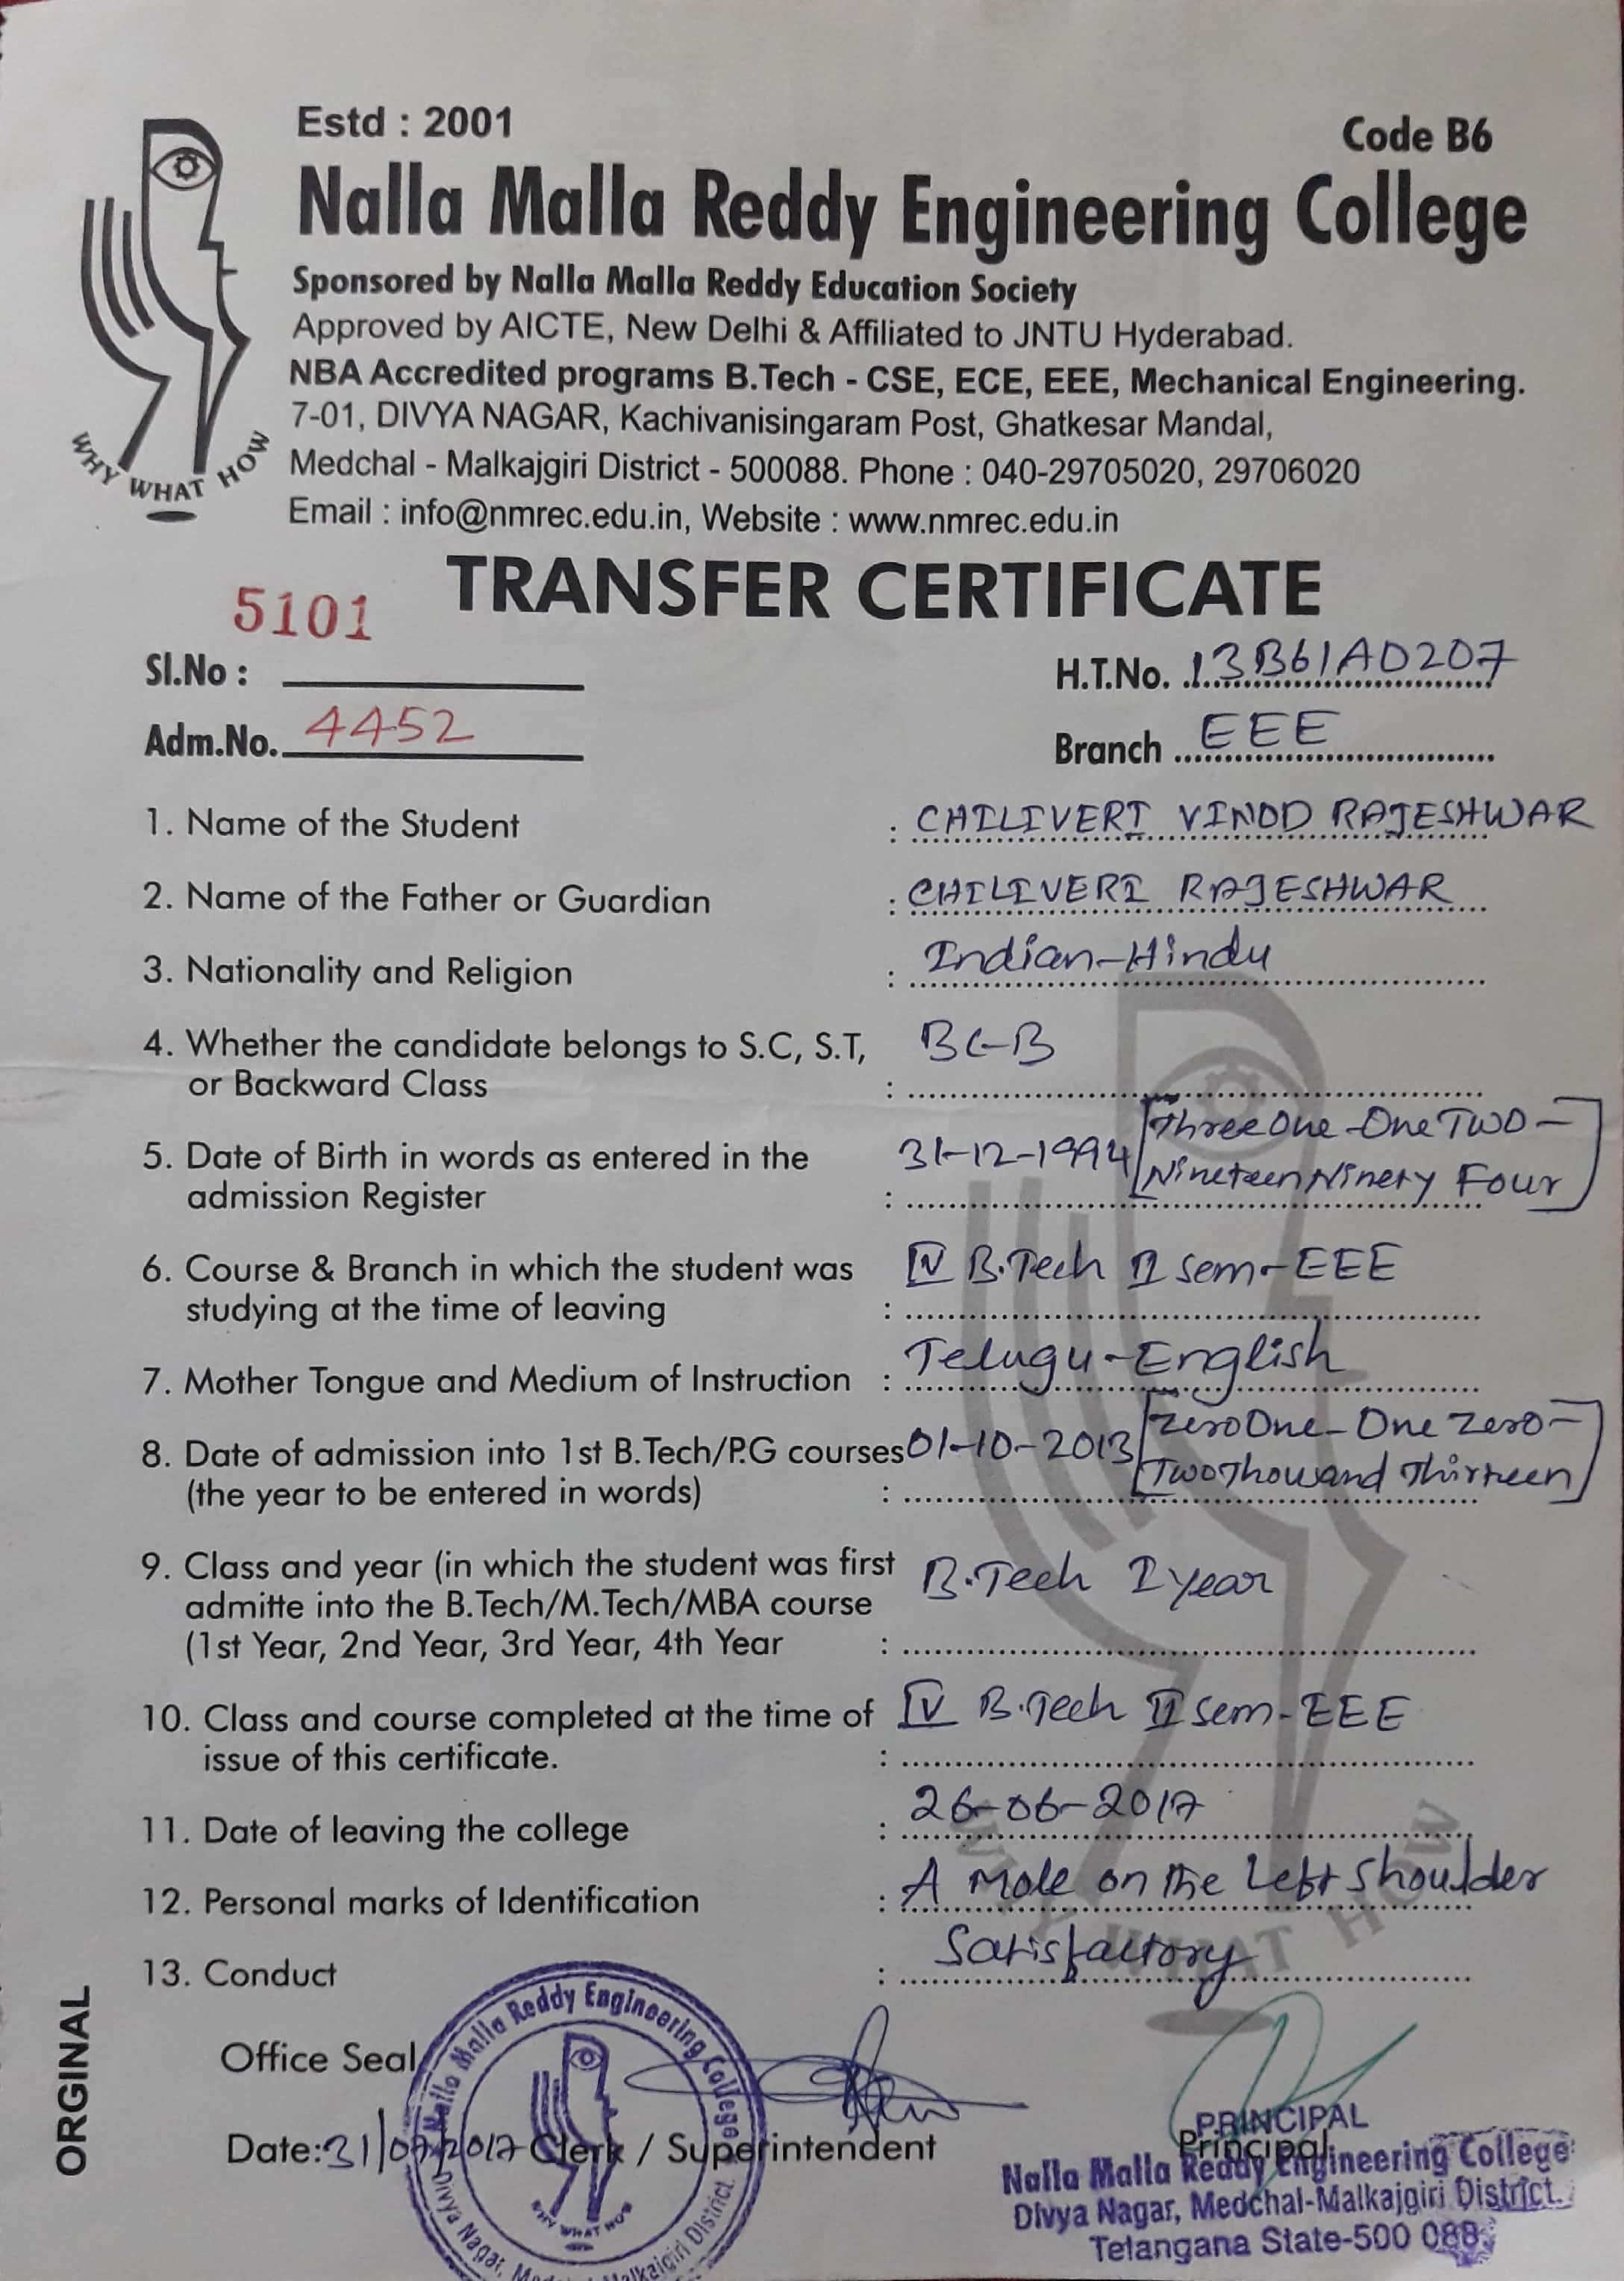 Estd : 2001
Code B6
Nalla Malla Reddy Engineering College
Sponsored by Nalla Malla Reddy Education Society
Approved by AICTE, New Delhi & Affiliated to JNTU Hyderabad.
NBA Accredited programs B.Tech - CSE, ECE, EEE, Mechanical Engineering.
7-01, DIVYA NAGAR, Kachivanisingaram Post, Ghatkesar Mandal,
Medchal - Malkajgiri District - 500088. Phone : 040-29705020, 29706020
Email : info@nmrec.edu.in, Website : www.nmrec.edu.in
WHY WHAT HOW
TRANSFER CERTIFICATE
5101
Sl.No :
H.T.No. 13B61A0207
Adm.No. 4452
Branch EEE
1. Name of the Student : CHILIVERI VINOD RAJESHWAR
2. Name of the Father or Guardian : CHILIVERI RAJESHWAR
3. Nationality and Religion : Indian-Hindu
4. Whether the candidate belongs to S.C, S.T, BC-B
or Backward Class :
5. Date of Birth in words as entered in the 31-12-1994 [Three One-One Two-
admission Register : Nineteen Ninety Four]
6. Course & Branch in which the student was IV B.Tech II Sem-EEE
studying at the time of leaving :
7. Mother Tongue and Medium of Instruction : Telugu-English
8. Date of admission into 1st B.Tech/P.G courses 01-10-2013 [Zero One-One Zero-
(the year to be entered in words) : Two Thousand Thirteen]
9. Class and year (in which the student was first B.Tech I year
admitte into the B.Tech/M.Tech/MBA course
(1st Year, 2nd Year, 3rd Year, 4th Year :
10. Class and course completed at the time of IV B.Tech II Sem-EEE
issue of this certificate. :
11. Date of leaving the college : 26-06-2017
12. Personal marks of Identification : A Mole on the Left Shoulder
13. Conduct : Satisfactory
WHY WHAT HOW
ORGINAL
Office Seal
Nalla Malla Reddy Engineering College
Divya Nagar, Medchal-Malkajgiri District.
WHY WHAT HOW
Date: 31/07/2017 Clerk / Superintendent
Principal
PRINCIPAL
Nalla Malla Reddy Engineering College
Divya Nagar, Medchal-Malkajgiri District.
Telangana State-500 088.